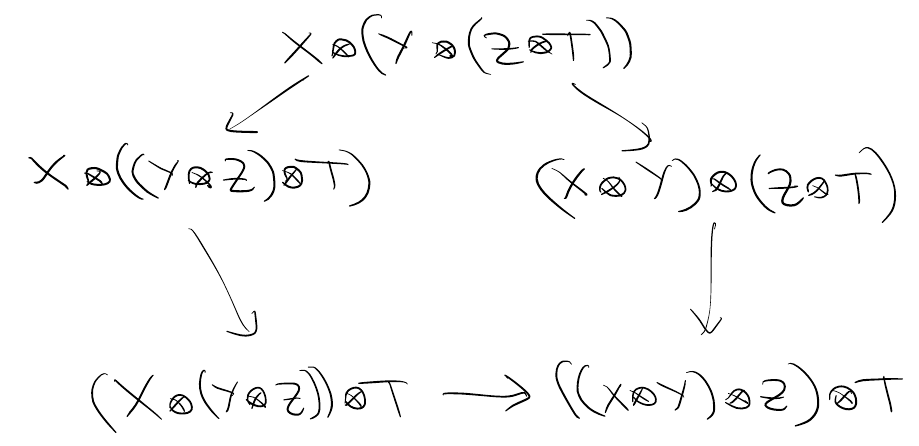 X ⊗ (Y ⊗ (Z ⊗ T))
X ⊗ ((Y ⊗ Z) ⊗ T)
(X ⊗ Y) ⊗ (Z ⊗ T)
(X ⊗ (Y ⊗ Z)) ⊗ T
((X ⊗ Y) ⊗ Z) ⊗ T